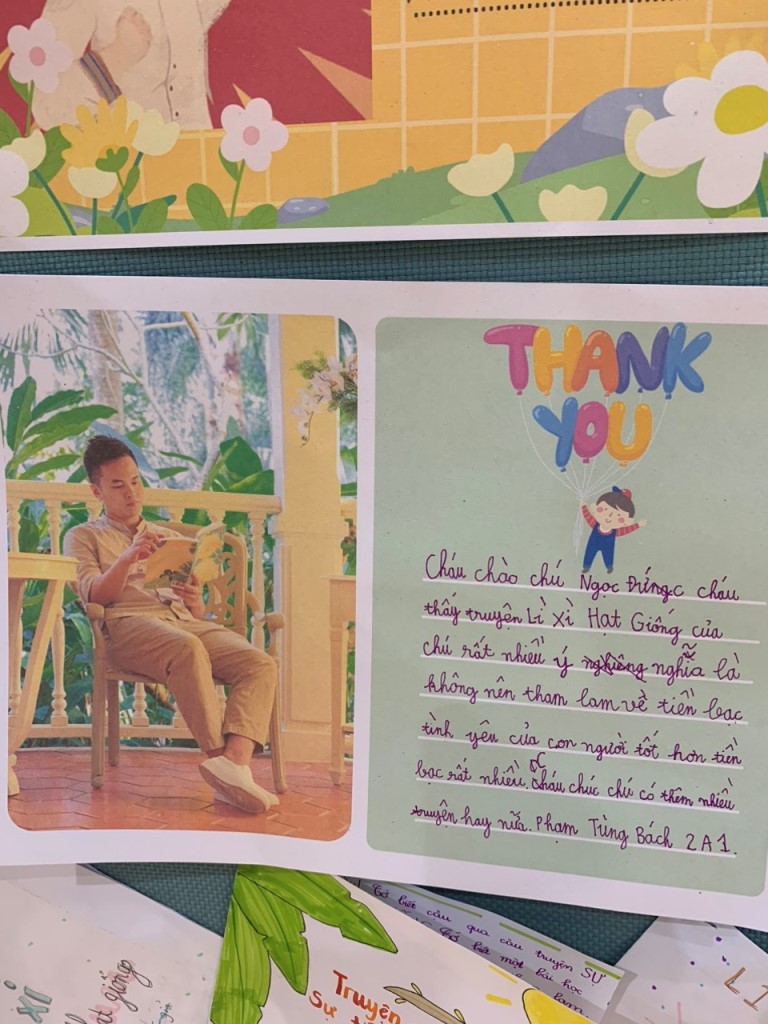 THANK
YOU
Cháu chào chú Ngọc cháu
thấy truyện Lì xì Hạt Giống của
chú rất nhiều ý nghĩa là
không nên tham lam về tiền bạc
tình yêu của con người tốt hơn tiền
bạc rất nhiều. Cháu chúc chú có thêm nhiều
truyện hay nữa. Phạm Tùng Bách 2A1.
câu truyện SỰ
một bài học
Truyện
Sự
xì
giống
LÌ